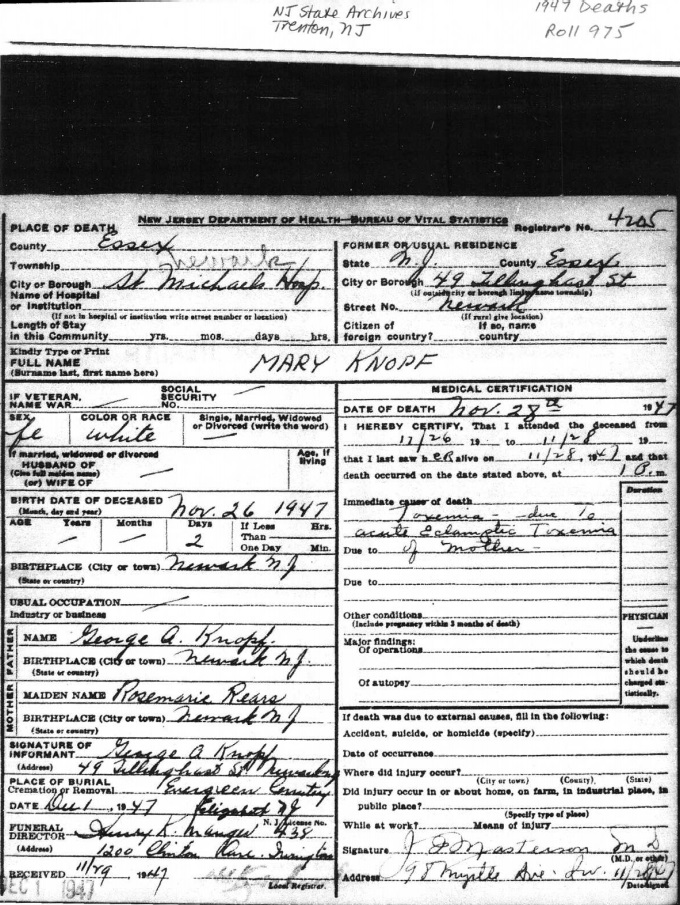 NJ State Archives
Trenton, NJ
1947 Deaths
Roll 975
NEW JERSEY DEPARTMENT OF HEALTH—BUREAU OF VITAL STATISTICS
Registrar's No. 4205
PLACE OF DEATH
County Essex
Township Newark
City or Borough St Michaels Hosp.
Name of Hospital
or Institution
(If not in hospital or institution write street number or location)
Length of Stay
in this Community yrs. mos. days hrs.
FORMER OR USUAL RESIDENCE
State N.J. County Essex
City or Borough 49 Tillinghast St
(If outside city or borough limits name township)
Street No. Newark
(If rural give location)
Citizen of If so, name
foreign country? country
Kindly Type or Print
FULL NAME MARY KNOPF
(Surname last, first name here)
IF VETERAN, SOCIAL
NAME WAR — SECURITY —
NO.
SEX COLOR OR RACE Single, Married, Widowed
or Divorced (write the word)
fe white —
If married, widowed or divorced Age, if
HUSBAND OF living
(Give full maiden name)
(or) WIFE OF
BIRTH DATE OF DECEASED Nov. 26 1947
(Month, day and year)
AGE Years Months Days If Less Hrs.
— — 2 Than
One Day Min.
BIRTHPLACE (City or town) Newark NJ
(State or country)
USUAL OCCUPATION —
Industry or business
FATHER
NAME George A. Knopf.
BIRTHPLACE (City or town) Newark NJ.
(State or country)
MOTHER
MAIDEN NAME Rosemarie Rears
BIRTHPLACE (City or town) Newark NJ
(State or country)
SIGNATURE OF
INFORMANT George A Knopf
(Address) 49 Tillinghast St Newark
PLACE OF BURIAL
Cremation or Removal Evergreen Cemetery
DATE Dec 1, 1947 Elizabeth NJ
FUNERAL N. J. License No.
DIRECTOR Henry K. 438
(Address) 1200 Clinton Ave. Irvington
RECEIVED 11/29 1947
Local Registrar.
DEC 1 1947
MEDICAL CERTIFICATION
DATE OF DEATH Nov. 28th 1947
I HEREBY CERTIFY, That I attended the deceased from
11/26 19 to 11/28 19
that I last saw her alive on 11/28, 1947 and that
death occurred on the date stated above, at 1 P. m.
Duration
Immediate cause of death
Toxemia - due to
acute Eclamptic Toxemia
Due to of Mother -
Due to
Other conditions
(Include pregnancy within 3 months of death)
Major findings:
Of operations
Of autopsy
PHYSICIAN
Underline
the cause to
which death
should be
charged sta-
tistically.
If death was due to external causes, fill in the following:
Accident, suicide, or homicide (specify)
Date of occurrence
Where did injury occur?
(City or town.) (County) (State)
Did injury occur in or about home, on farm, in industrial place, in
public place?
(Specify type of place)
While at work? Means of injury
Signature J F Masterson M D
(M.D. or other)
Address 98 Myrtle Ave. Irv. 11/29/47
Date signed